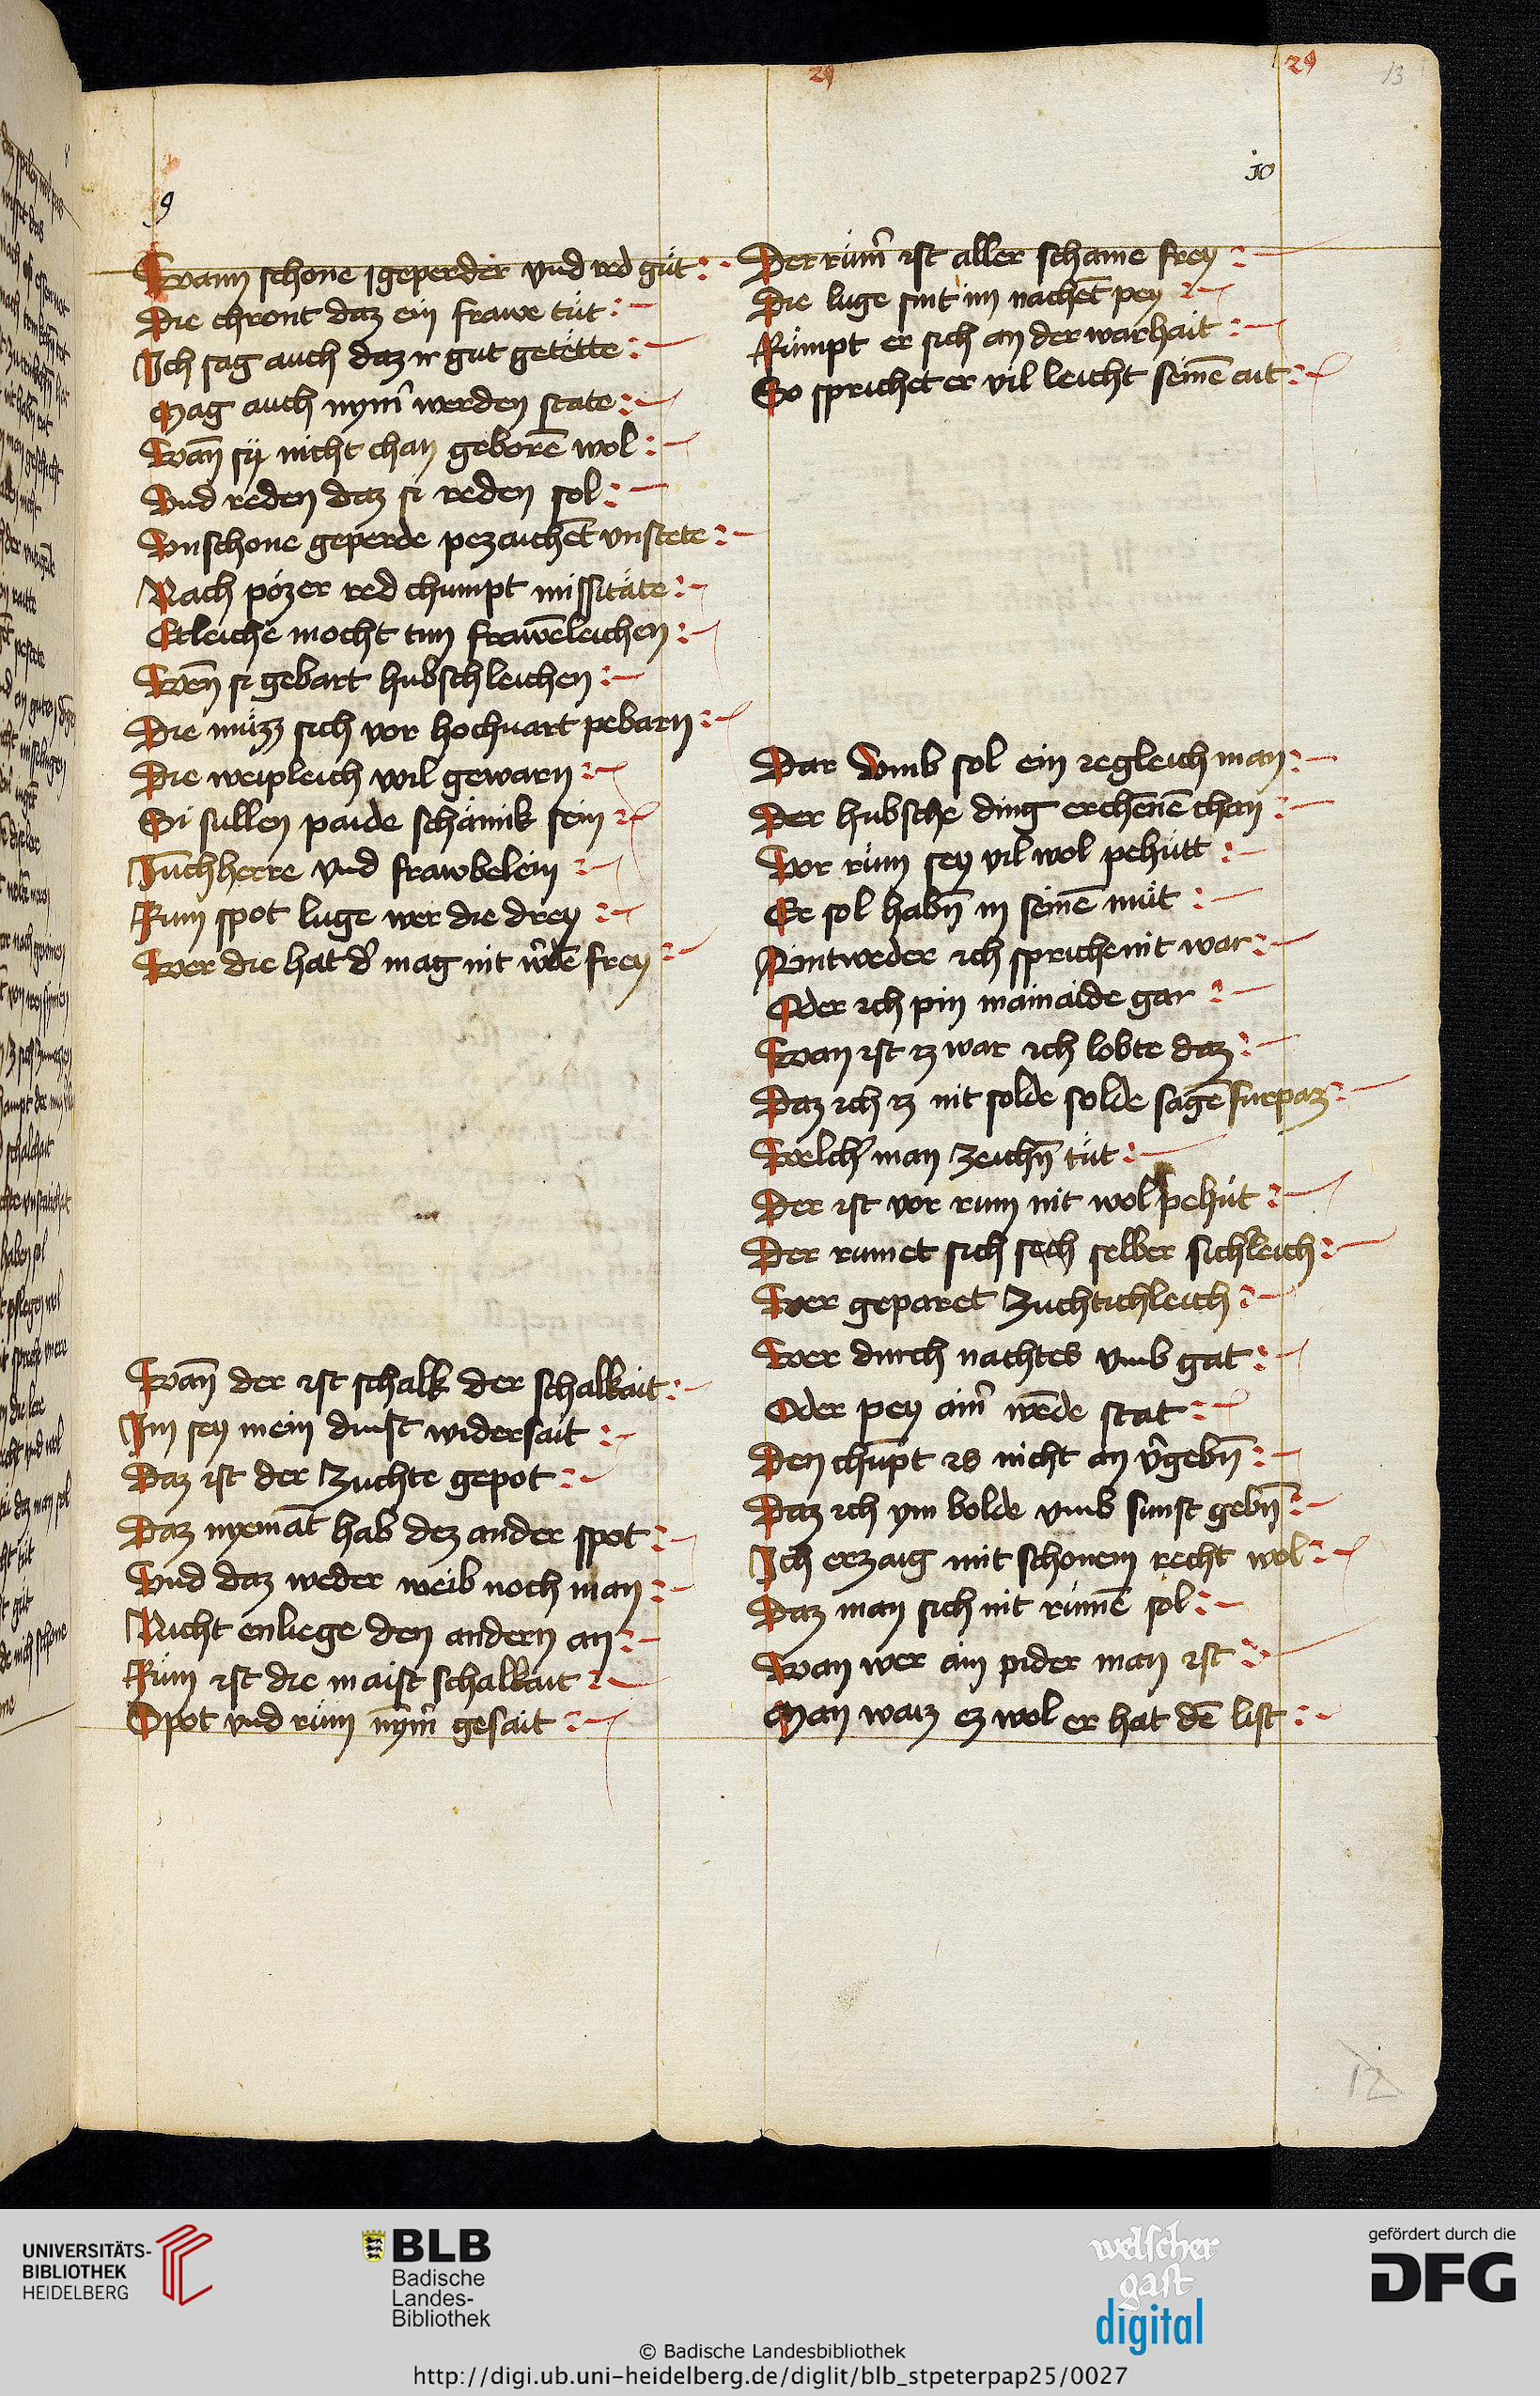 29
29
13
9
Wann schone geperder vnd red gůt
Die chront daz ein frawe tůt
Ich sag auch daz ir gut getëtte
Mag auch nym̄ werden state
Wan̄ sÿ nicht chan geborē wol
Vnd reden daz si reden sol
Vnschone geperde pezaichēt vnstete
Nach pözer red chumpt missitäte
Etleiche mocht tun frawēleichen
Wen̄ si gebart hubschleichen
Die můzz sich vor hochuart pebarn
Die weipleich wil gewarn
Si sullen paide schämik sein
Junchherre vnd frawbelein
Rum spot luge wer die drey
Wer die hat d' mag nit w'dē frey
Wan̄ der ist schalk der schalkait
Im sey mein dinst widersait
Daz ist der zuchte gepot
Daz nyemāt hab dez ander spot
Vnd daz weder weib noch man
Nicht enliege den andern an
Rům ist die maist schalkait
Spot vnd rům nym̄ gesait
10
Der rům̄ ist aller schame frey
Die luge sint im nachēt pey
Růmpt er sich an der warhait
So sprichet er vil leicht seinē ait
Dar Vmb sol ein iegleich man
Der hubsche ding erchēnē chan
Vor rům sey vil wol pehůtt
Er sol habn̄ in seinē můt
Aintweder ich spriche nit war
Oder ich pin mainaide gar
Wan ist iz war ich lobte daz
Daz ich iz nit solde solde sagē furpaz
Welch' man zeichn̄ tůt
Der ist vor rum nit wol pehůt
Der rumet sich sech selber sichleich
Wer geparet zuchtichleich
Wer durch nachtes vmb gat
Oder pey aim̄ wēde stat
Den chūpt es nicht an v'gebn̄
Daz ich ym bolde vmb sunst gebn̄
Ich erzaig mit schonem recht wol
Daz man sich nit růmē sol
Wan wer ain pider man ist
Man waiz ez wol er hat dē list
12
UNIVERSITÄTS-
BIBLIOTHEK
HEIDELBERG
BLB
Badische
Landes-
Bibliothek
welscher
gast
digital
gefördert durch die
DFG
© Badische Landesbibliothek
http://digi.ub.uni-heidelberg.de/diglit/blb_stpeterpap25/0027